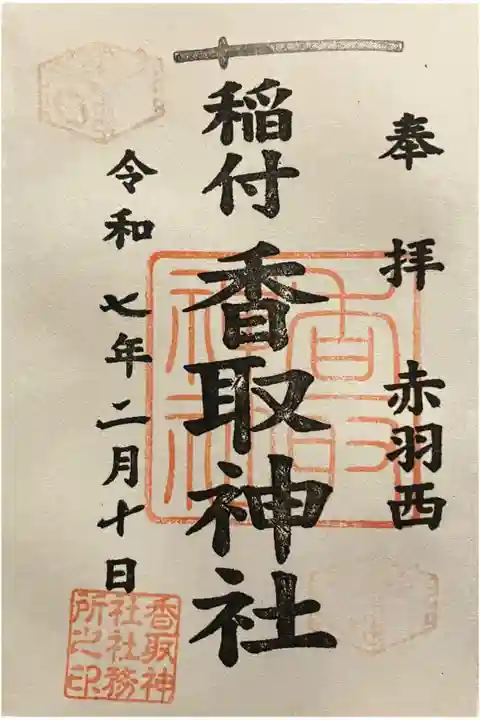 奉拝
赤羽西
稲付
香取神社
香取
神社
令和七年二月十日
香取神
社社務
所之印